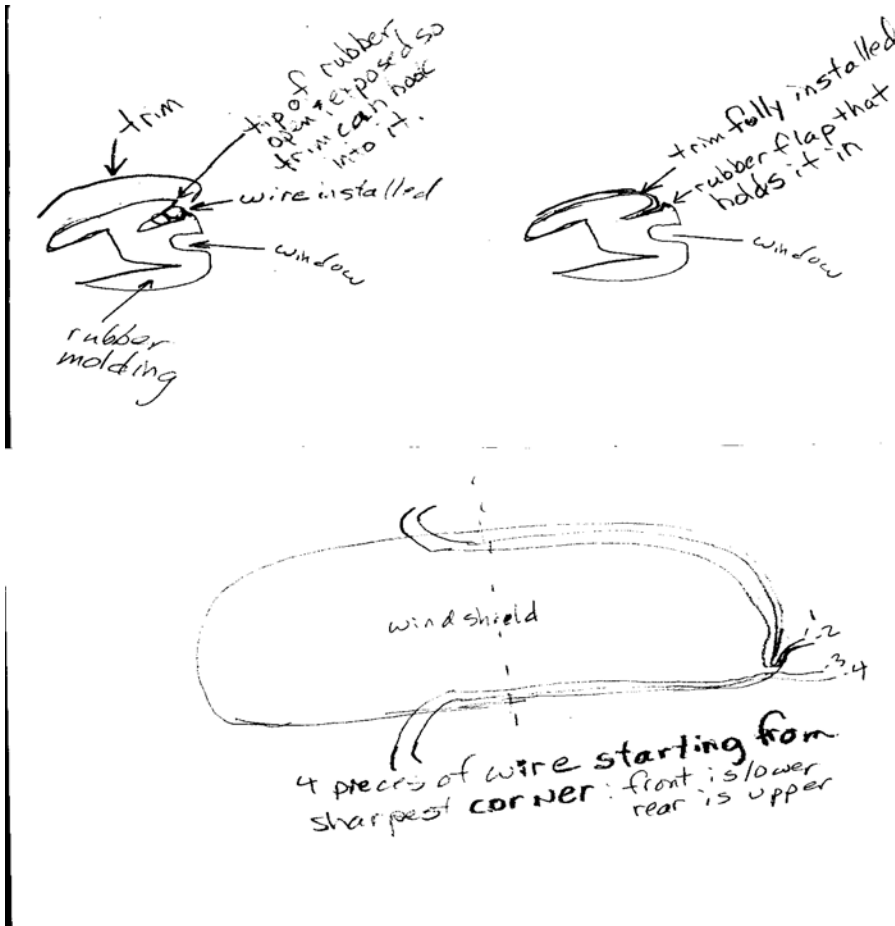 trim
tip of rubber,
open & exposed so
trim can hook
into it.
wire installed
window
rubber
molding
trim fully installed
rubber flap that
holds it in
window
windshield
1
2
3
4
4 pieces of wire starting from
sharpest corner: front is lower
rear is upper